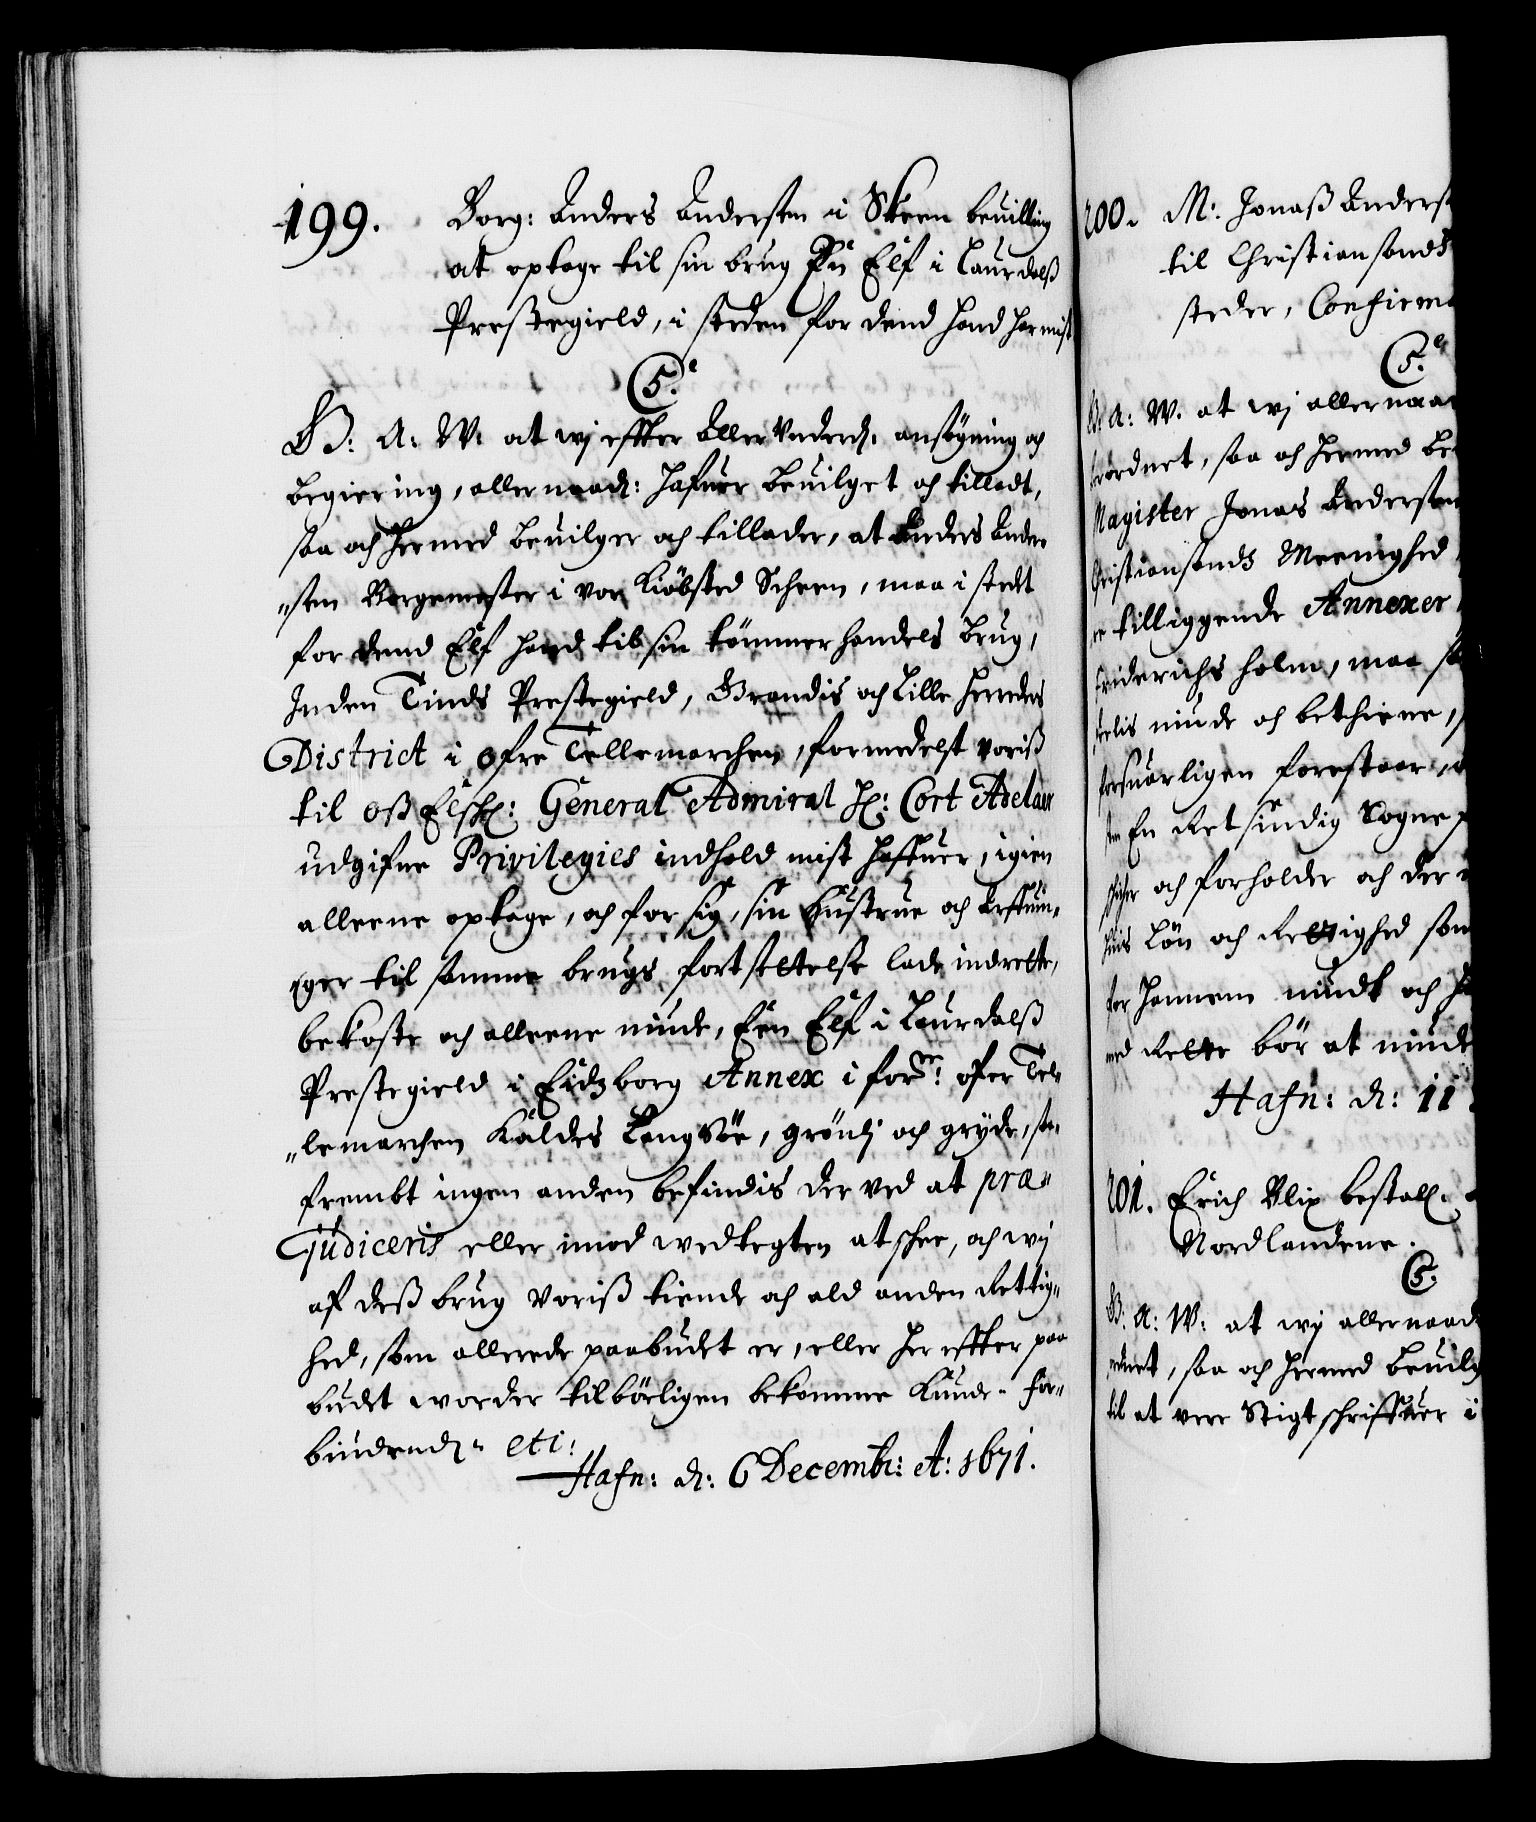 199. Borg: Anders Andersen i Skeen beuilling
at optage til sin brug En Elf i Laurdalß
Prestegield, i steden for dend hand har mist
C 5.e
G: A: W: at wj effter Aller Underd: ansøgning och
begiering, allernaad: hafuer beuilget och tilladt,
saa och hermed beuilger och tillader, at Anders Ander„
„sen Borgemester i vor Kiöbsted Scheen, maa i stedt
for dend Elf hand til sin tømmerhandels brug,
Inden Tinds Prestegield, Grandis och Lille Herreders
District i Ofre Tellemarchen, formedelst voriß
til oß Elsch: General Admiral H: Cort Adelaer
udgifne Privilegies indhold mist haffuer, igien
alleene optage, och for sig, sin Hustrue och Arffuin„
ger til samme brugs fortsettelse lade indrette,
bekoste och alleene niude, Een Elf i Laurdalß
Prestegield i Eidzborg Annex i forne: ofer Tel„
„lemarchen Kaldes Langsöe, grönli och gryde, saa„
frembt ingen anden befindis der ved at præ„
judiceris eller imod wedtegten at schee, och wij
af deß brug voriß tiende och ald anden Rettig„
hed, som allerede paabudet er, eller her effter paa
budet worder tilbörligen bekomme kunde. For„
biudend: etc:
Hafn: d: 6 Decemb: A: 1671.
200. M: Jonaß Anders
til Christiansands
steder, Confirma
C 5.e
G: A: W. at wj allernaa
ordnet, saa och hermed be
Magister Jonas Andersen
Christiansands Meenighed
tilliggende Annexer
Friderichs holm, maa
niude och betiene,
forsuarligen forestaar,
En Retsindig Sogne
och forholder och der
Løn och Rettighed som
for hannem niudt och
med Rette bör at niude
Hafn: d: 11
201. Erich Blix bestall:
Nordlandene.
C 5.
G: A: W: at wij allernaad
ordnet, saa och hermed beuilg
til at vere Stigtschriffuer i